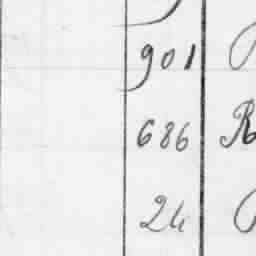 901
686 R
24